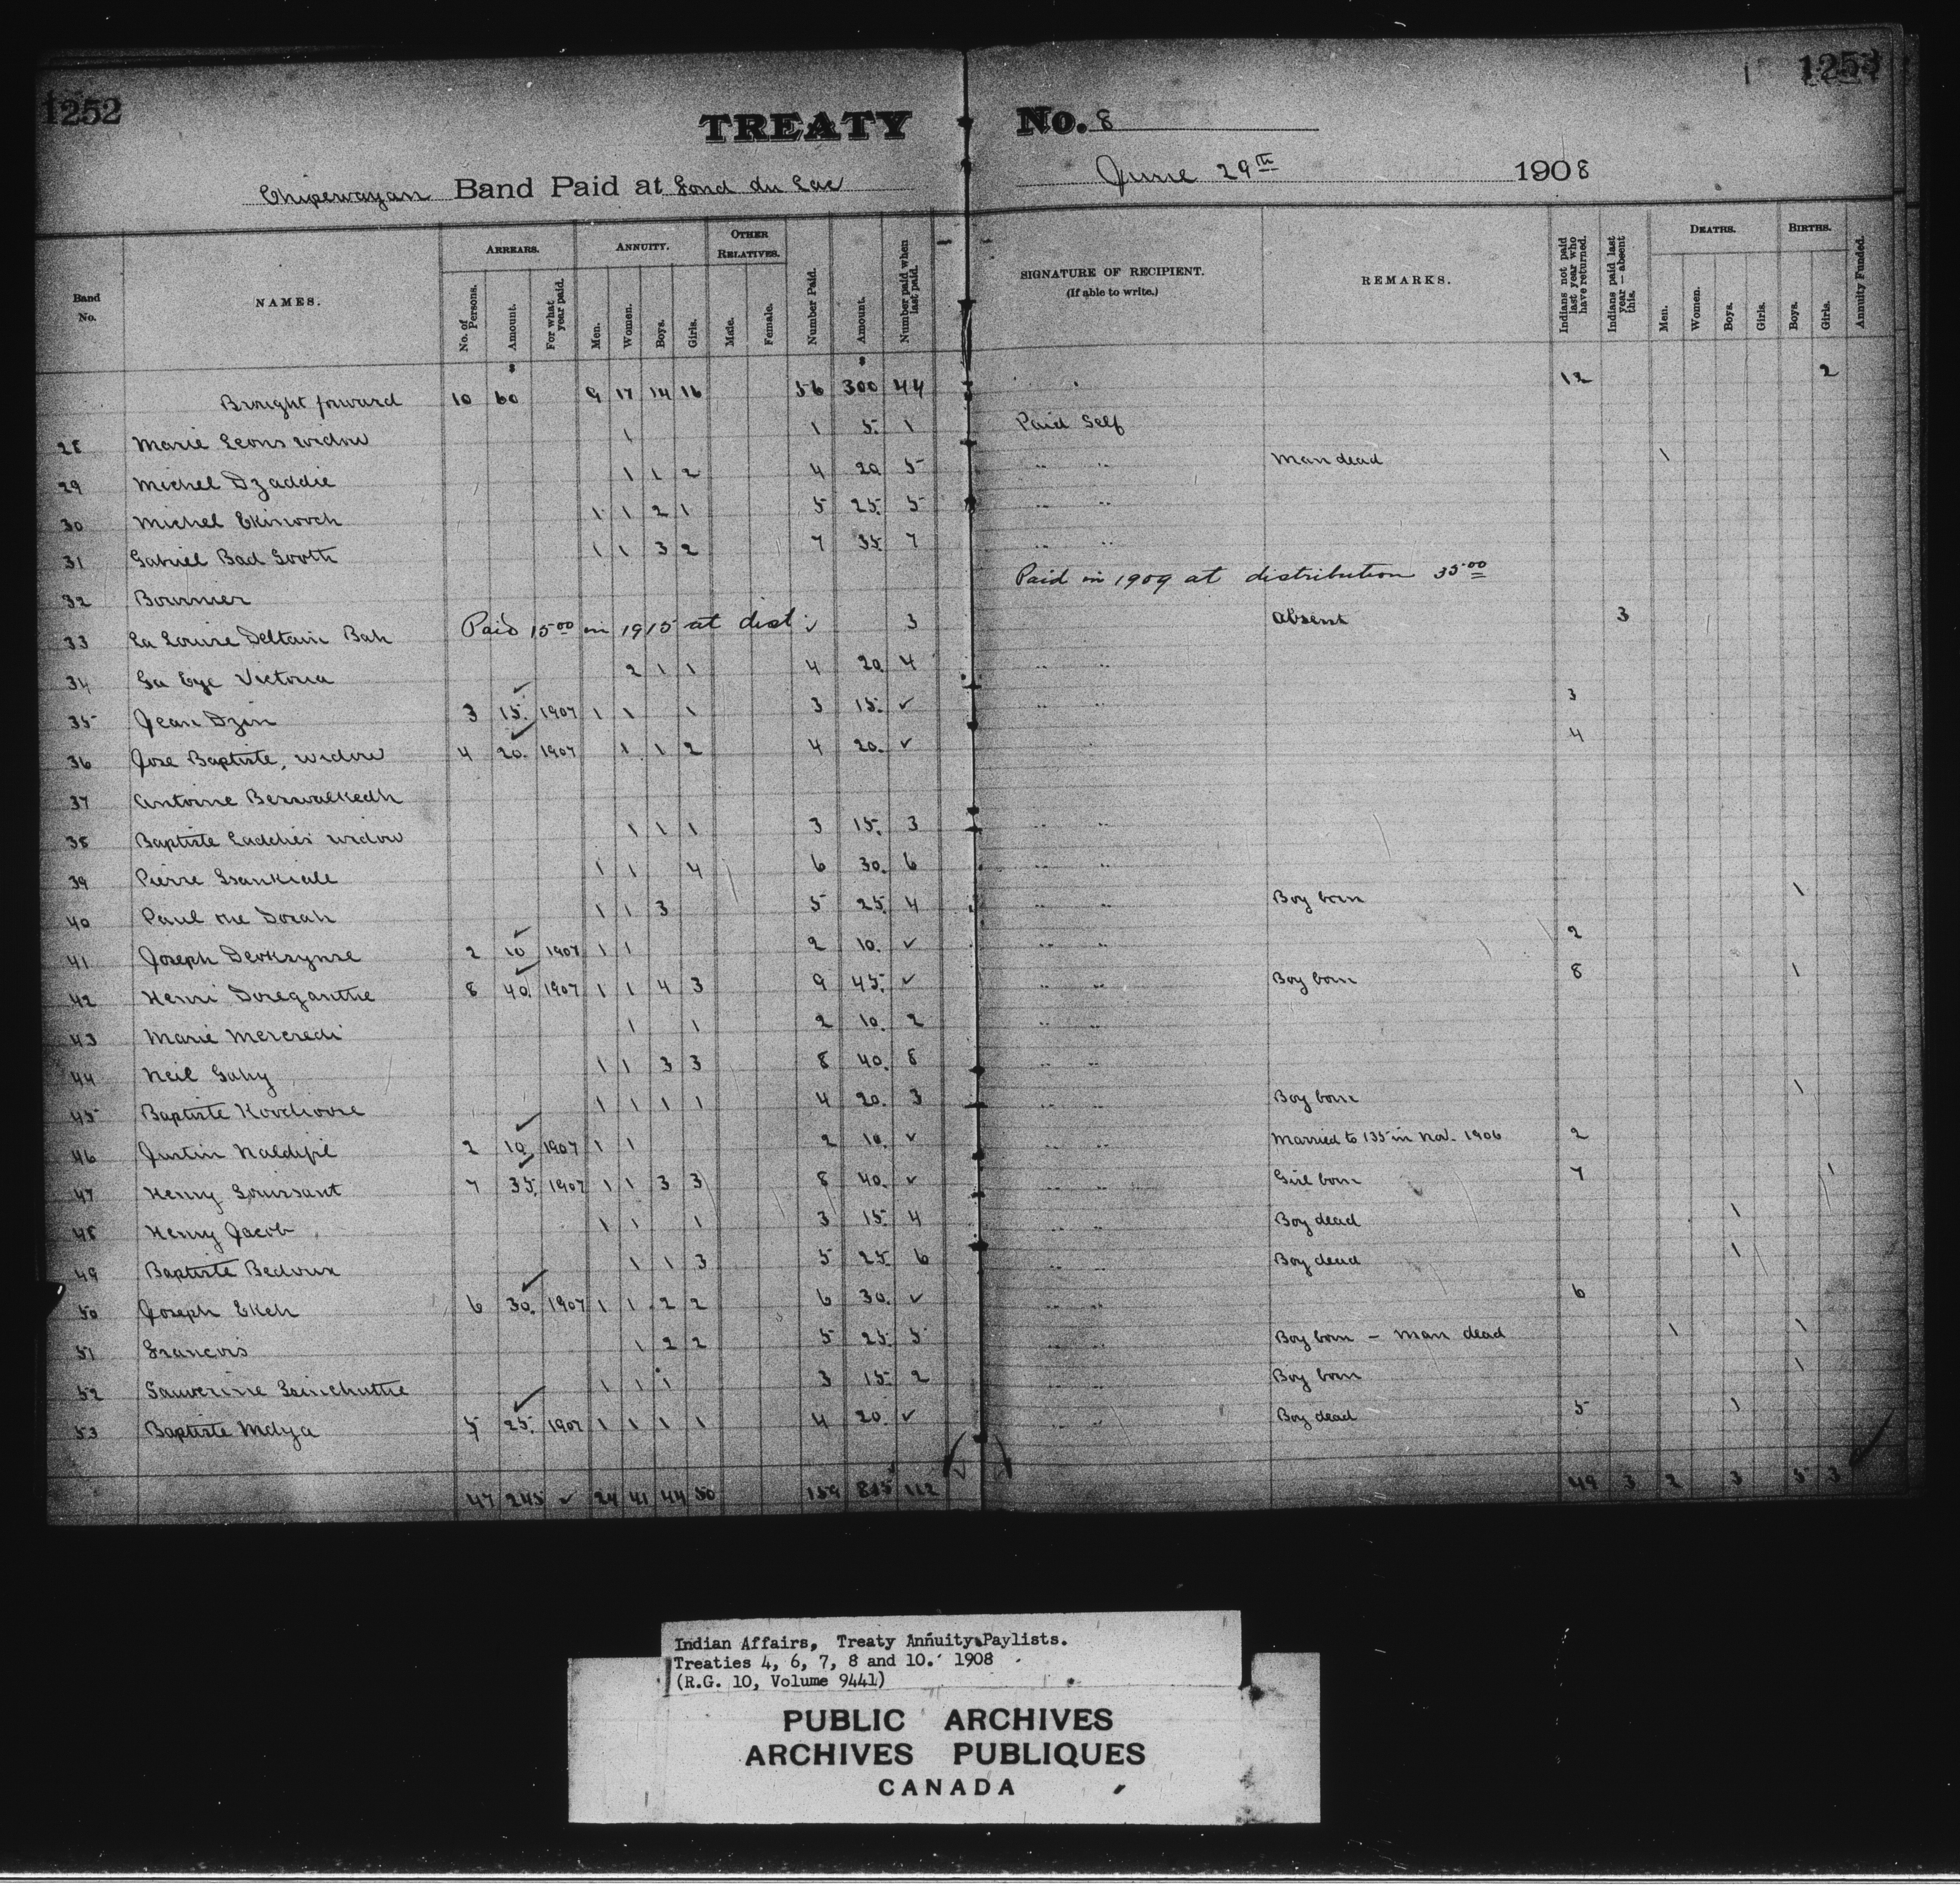 1252
1253
TREATY No. 8
Chipewayan Band Paid at Fond du Lac June 29th 1908
Band No. NAMES. ARREARS. No. of Persons. Amount. For what year paid. ANNUITY. Men. Women. Boys. Girls. OTHER RELATIVES. Male. Female. Number Paid. Amount. Number paid when last paid. SIGNATURE OF RECIPIENT. (If able to write.) REMARKS. Indians not paid last year who have returned. Indians paid last year—absent this. DEATHS. Men. Women. Boys. Girls. BIRTHS. Boys. Girls. Annuity Funded.
Brought forward 10 60 9 17 14 16 56 300 44 12 2
28 Marie Leons widow 1 1 5. 1 Paid Self
29 Michel Dzaddie 1 1 2 4 20 5 " " Man dead 1
30 Michel Ekinooch 1 1 2 1 5 25. 5 " "
31 Gabriel Bad Tooth 1 1 3 2 7 35. 7 " "
32 Bournier Paid in 1909 at distribution 35.00
33 La Louise Deltain Bah Paid 15.00 in 1915 at dist: ✓ 3 Absent 3
34 Ga Eye Victoria 2 1 1 4 20 4 " "
35 Jean Dzin 3 15. ✓ 1907 1 1 1 3 15. ✓ " " 3
36 Jose Baptiste, widow 4 20. ✓ 1907 1 1 2 4 20. ✓ 4
37 Antoine Beswalkedh
38 Baptiste Eadchés widow 1 1 1 3 15. 3 " "
39 Pierre 1 1 4 6 30. 6 " "
40 Paul the Dorah 1 1 3 5 25. 4 " " Boy born 1
41 Joseph 2 10 ✓ 1907 1 1 2 10. ✓ " " 2
42 Henri Doreganthe 8 40. ✓ 1907 1 1 4 3 9 45. ✓ " " Boy born 8 1
43 Marie Mercredi 1 1 2 10. 2 " "
44 Neil Gahy 1 1 3 3 8 40. 8 " "
45 Baptiste Koochoose 1 1 1 1 4 20. 3 " " Boy born 1
46 Justin Naldijil 2 10. ✓ 1907 1 1 2 10. ✓ " " Married to 135 in Nov. 1906 2
47 Henry Toussant 7 35. ✓ 1907 1 1 3 3 8 40. ✓ " " Girl born 7 1
48 Henry Jacob 1 1 1 3 15. 4 " " Boy dead 1
49 Baptiste Bedoux 1 1 3 5 25. 6 " " Boy dead 1
50 Joseph Ekeh 6 30. ✓ 1907 1 1 2 2 6 30. ✓ " " 6
51 Francois 1 2 2 5 25. 5 " " Boy born – Man dead 1 1
52 Sauverine 1 1 1 3 15. 2 " " Boy born 1
53 Baptiste Mdya 5 25. ✓ 1907 1 1 1 1 4 20. ✓ " " Boy dead 5 1
47 245 ✓ 24 41 44 50 159 815 112 49 3 2 3 5 3
Indian Affairs, Treaty Annuity Paylists.
Treaties 4, 6, 7, 8 and 10. 1908
(R.G. 10, Volume 9441)
PUBLIC ARCHIVES
ARCHIVES PUBLIQUES
CANADA